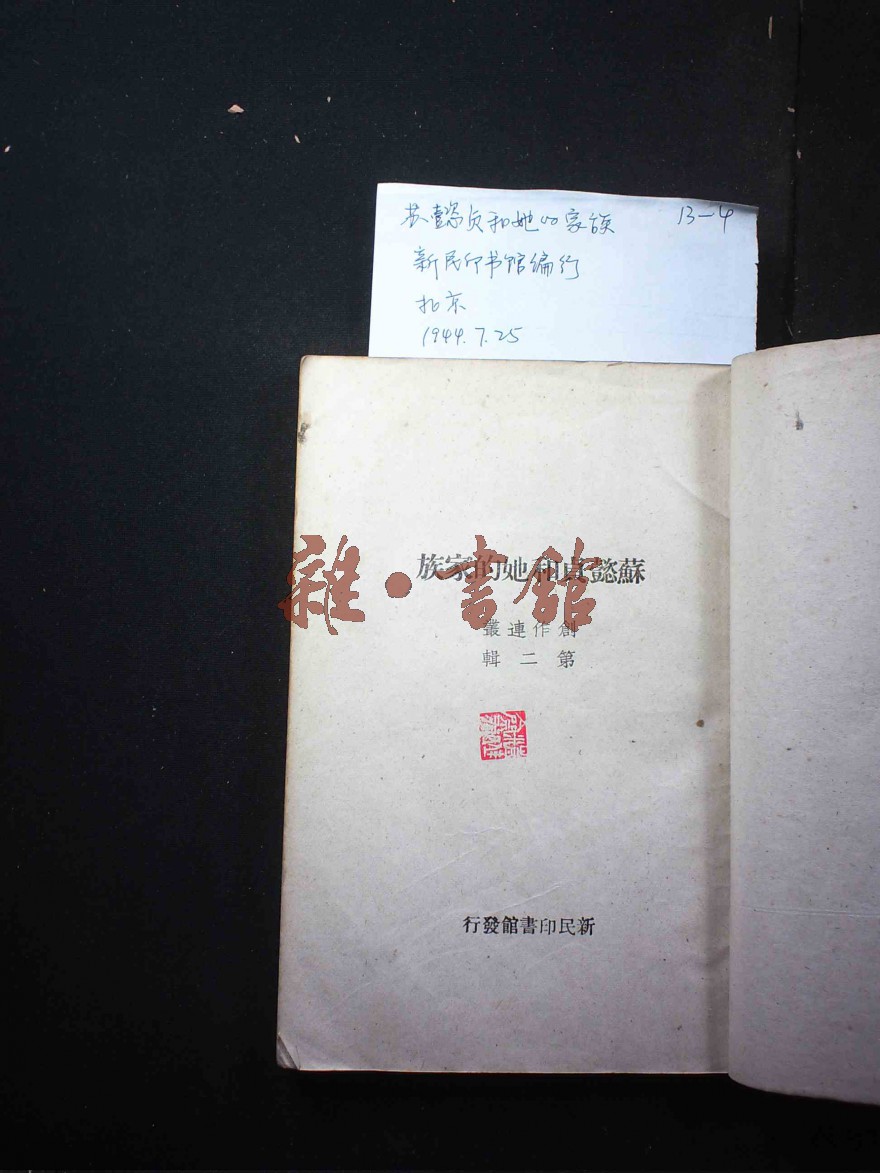 苏懿贞和她的家族 13-4
新民印书馆编行
北京
1944.7.25
蘇懿貞和她的家族
創作連叢
第二輯
雜·書館
新民印書館發行